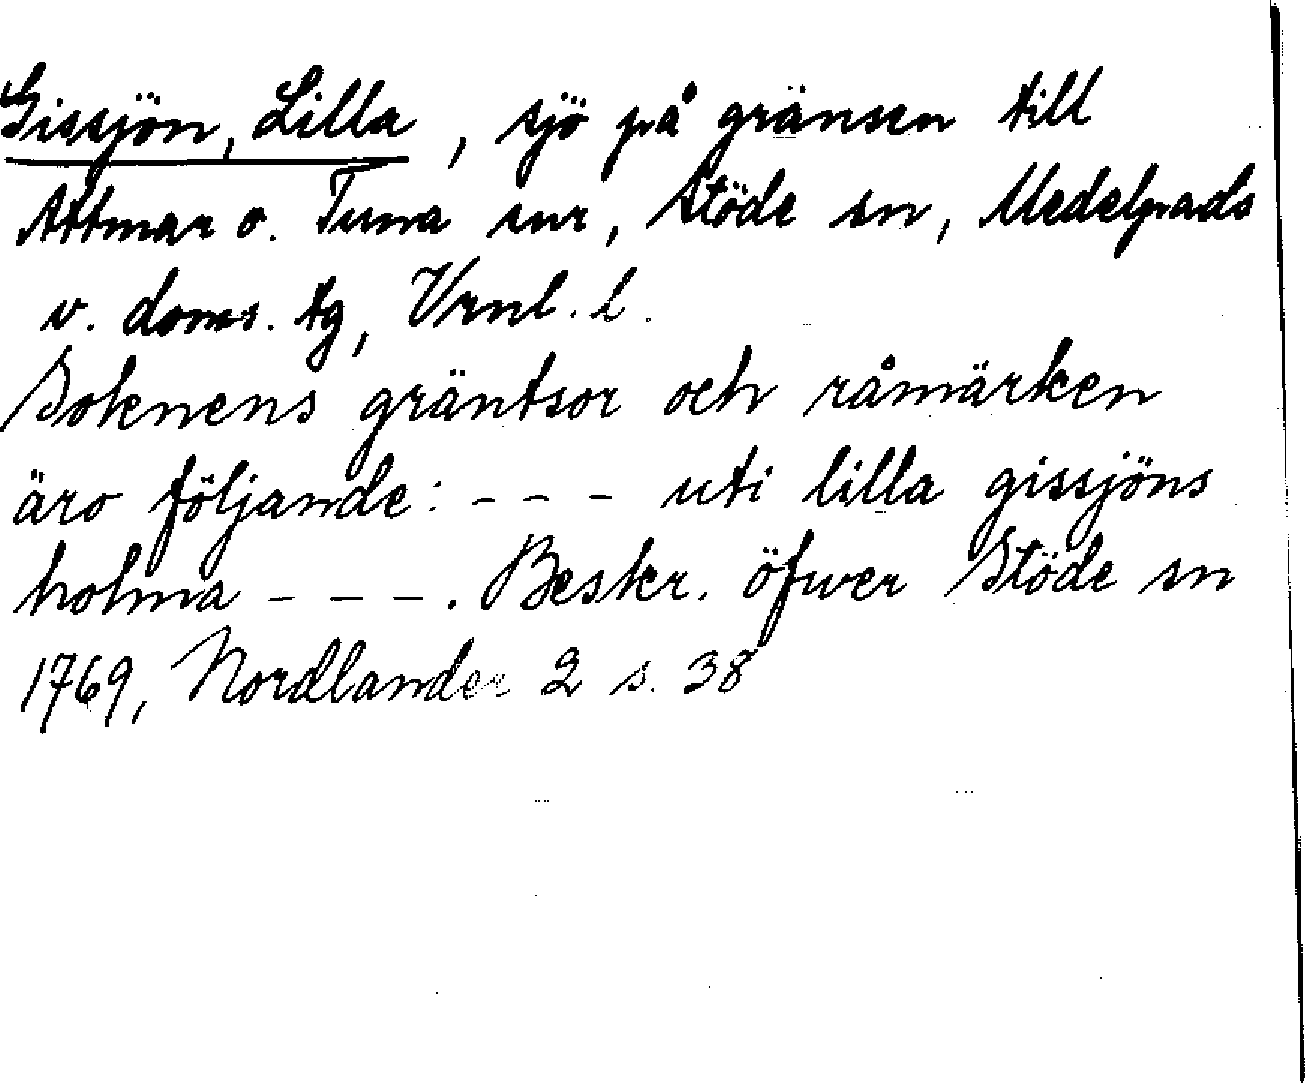 Gissjön, Lilla, sjö på gränsen till
Attmar o. Tuna snr, Stöde sn, Medelpads
v. doms. tg, Vrnl. l.
Soknens gräntsor och råmärken
äro följande: - - - uti lilla gissjöns
holma - - -. Beskr. öfwer Stöde sn
1769, Nordlander 2 s. 38